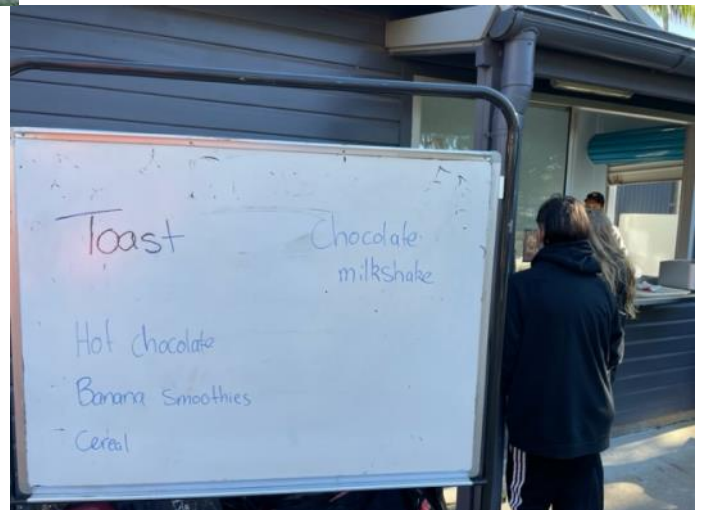 Toast
Chocolate
milkshake
Hot chocolate
Banana Smoothies
Cereal